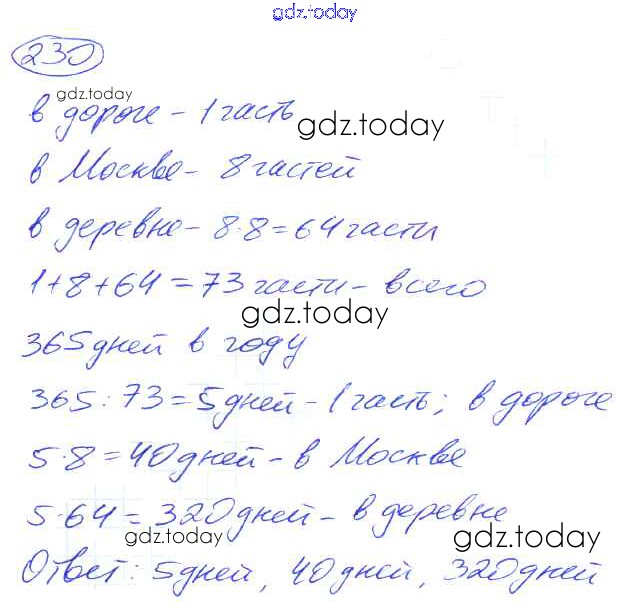 gdz.today
230
gdz.today
в дороге - 1 часть
gdz.today
в Москве - 8 частей
в деревне - 8·8=64 части
1+8+64=73 части - всего
gdz.today
365 дней в году
365:73=5 дней - 1 часть; в дороге
5·8=40 дней - в Москве
5·64=320 дней - в деревне
gdz.today
gdz.today
Ответ: 5 дней, 40 дней, 320 дней